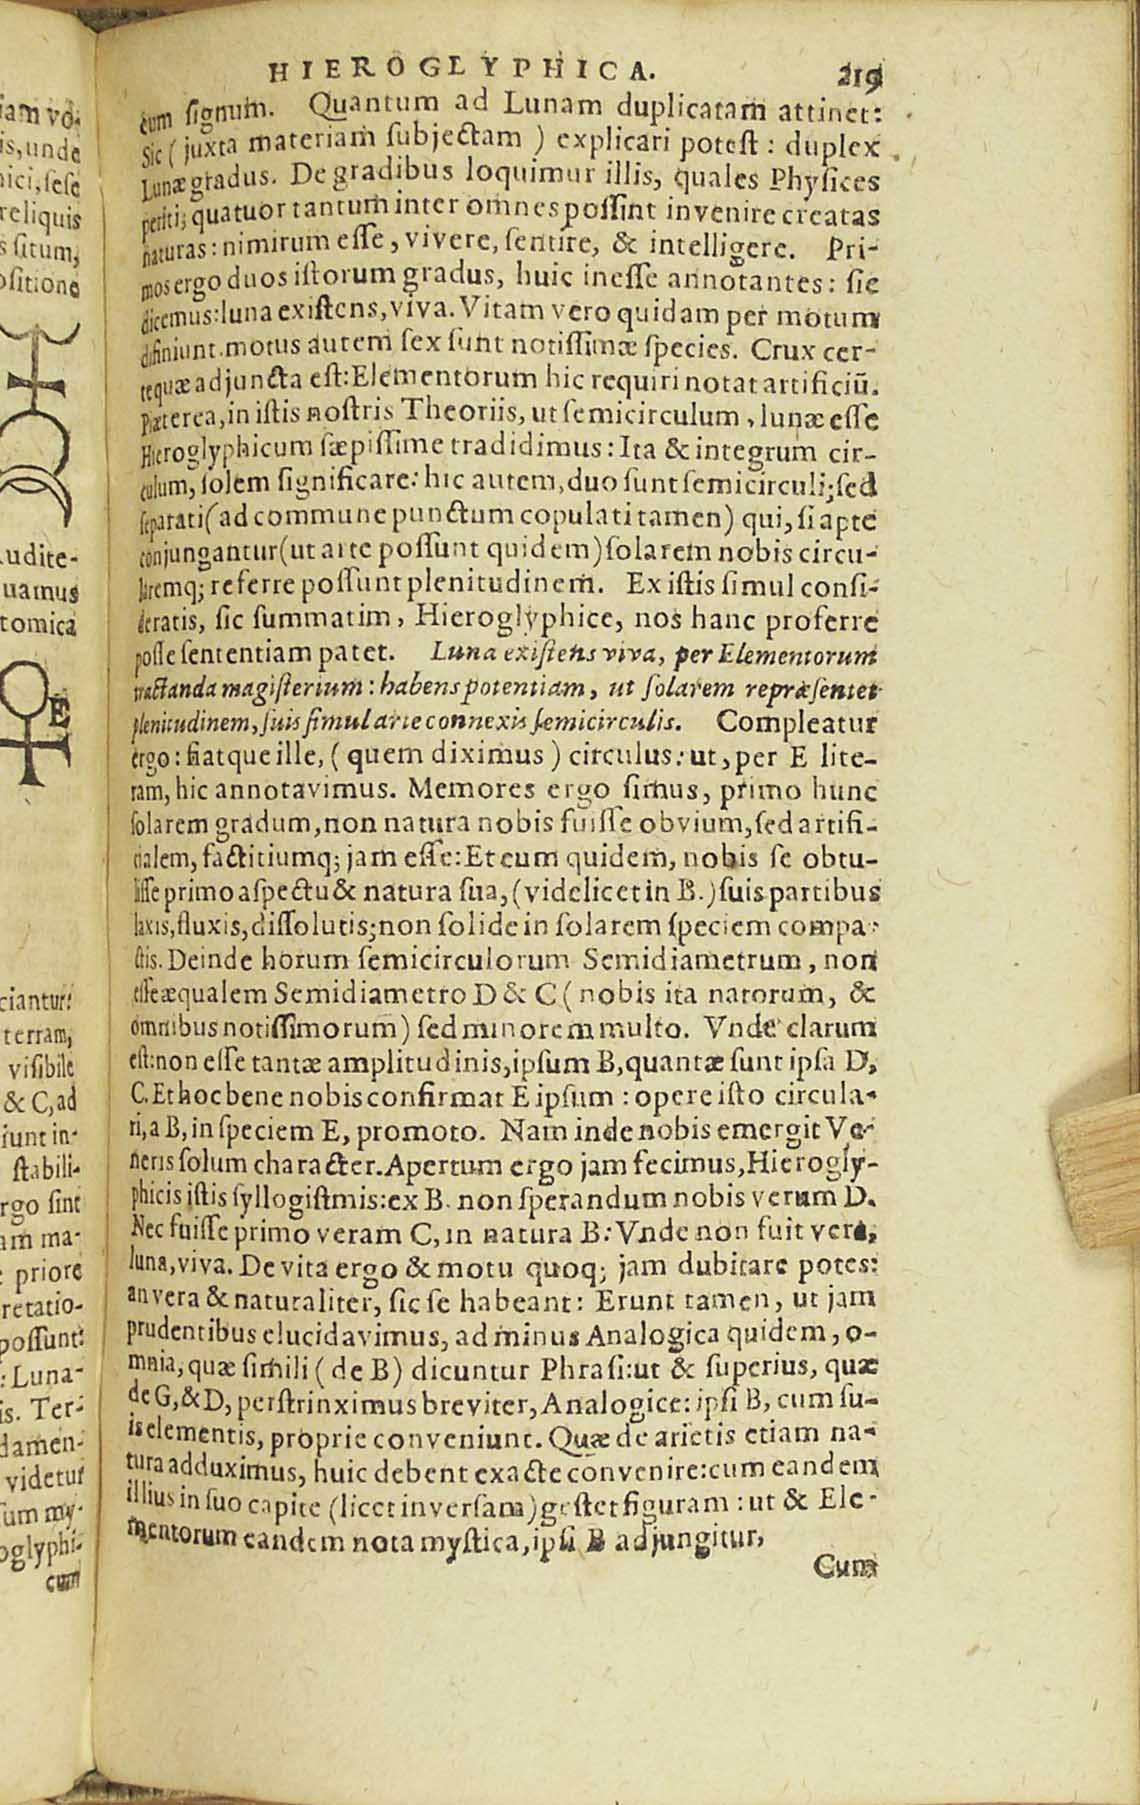 iam vo-
is, unde
nici, sese
reliquis
s situm,
ositione
udite-
uamus
tomica
E
ciantur:
terram,
visibile
& C, ad
iunt in-
stabili-
rgo sint
am ma-
priore
retatio-
possunt:
: Luna-
is. Ter-
damen-
videtur
sum my-
oglyphi-
cum
HIEROGLYPHICA. 219
cum signum. Quantum ad Lunam duplicatam attinet:
Sic (juxta materiam subjectam) explicari potest: duplex
Lunæ gradus. De gradibus loquimur illis, quales Physices
periti; quatuor tantum inter omnes possint invenire creatas
naturas: nimirum esse, vivere, sentire, & intelligere. Pri-
mos ergo duos istorum gradus, huic inesse annotantes: sic
dicemus: luna existens, viva. Vitam vero quidam per motum
difiniunt. motus autem sex sunt notissimæ species. Crux cer-
te quæ adjuncta est: Elementorum hic requiri notat artificiū.
Præterea, in istis nostris Theoriis, ut semicirculum, lunæ esse
Hieroglyphicum sæpissime tradidimus: Ita & integrum cir-
culum, solem significare: hic autem, duo sunt semicirculi; sed
separati (ad commune punctum copulati tamen) qui, si apte
conjungantur (ut arte possunt quidem) solarem nobis circu-
laremq; referre possunt plenitudinem. Ex istis simul consi-
deratis, sic summatim, Hieroglyphice, nos hanc proferre
posse sententiam patet. Luna existens viva, per Elementorum
tractanda magisterium: habens potentiam, ut solarem repræsentet
plenitudinem, suis simul arte connexis semicirculis. Compleatur
ergo: fiatque ille, (quem diximus) circulus: ut, per E lite-
ram, hic annotavimus. Memores ergo simus, primo hunc
solarem gradum, non natura nobis fuisse obvium, sed artifi-
cialem, factitiumq; jam esse: Et eum quidem, nobis se obtu-
lisse primo aspectu & natura sua, (videlicet in B.) suis partibus
laxis, fluxis, dissolutis; non solide in solarem speciem compa-
ctis. Deinde horum semicirculorum Semidiametrum, non
esse æqualem Semidiametro D & C (nobis ita natorum, &
omnibus notissimorum) sed minorem multo. Vnde clarum
est: non esse tantæ amplitudinis, ipsum B, quantæ sunt ipsa D,
C. Et hoc bene nobis confirmat E ipsum: opere isto circula-
ri, a B, in speciem E, promoto. Nam inde nobis emergit Ve-
neris solum character. Apertum ergo jam fecimus, Hierogly-
phicis istis syllogistmis: ex B. non sperandum nobis verum D.
Nec fuisse primo veram C, in natura B: Vnde non fuit vera,
luna, viva. De vita ergo & motu quoq; jam dubitare potes:
an vera & naturaliter, sic se habeant: Erunt tamen, ut jam
prudentibus elucidavimus, ad minus Analogica quidem, o-
mnia, quæ simili (de B) dicuntur Phrasi: ut & superius, quæ
de G, & D, perstrinximus breviter, Analogice: ipsi B, cum su-
is elementis, proprie conveniunt. Quæ de arietis etiam na-
tura adduximus, huic debent exacte convenire: cum eandem
illius in suo capite (licet inversam) gestet figuram: ut & Ele-
mentorum eandem nota mystica, ipsi B adjungitur,
Cum